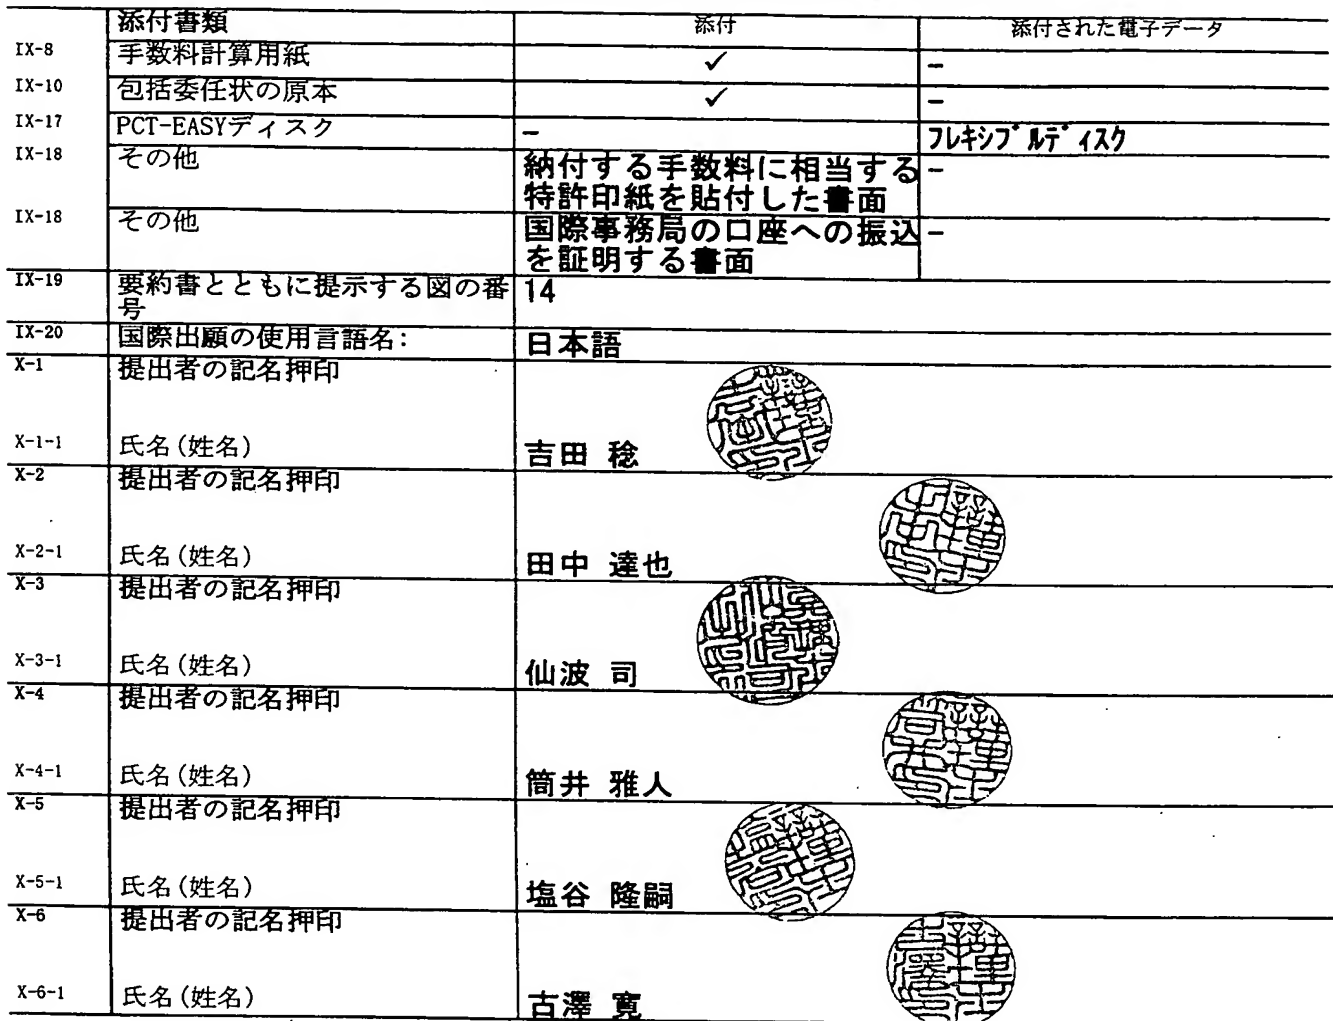 添付書類 添付 添付された電子データ
IX-8 手数料計算用紙 ✓ -
IX-10 包括委任状の原本 ✓ -
IX-17 PCT-EASYディスク - フレキシブルディスク
IX-18 その他 納付する手数料に相当する -
特許印紙を貼付した書面
IX-18 その他 国際事務局の口座への振込 -
を証明する書面
IX-19 要約書とともに提示する図の番 14
号
IX-20 国際出願の使用言語名: 日本語
X-1 提出者の記名押印
X-1-1 氏名(姓名) 吉田 稔
X-2 提出者の記名押印
X-2-1 氏名(姓名) 田中 達也
X-3 提出者の記名押印
X-3-1 氏名(姓名) 仙波 司
X-4 提出者の記名押印
X-4-1 氏名(姓名) 筒井 雅人
X-5 提出者の記名押印
X-5-1 氏名(姓名) 塩谷 隆嗣
X-6 提出者の記名押印
X-6-1 氏名(姓名) 古澤 寛